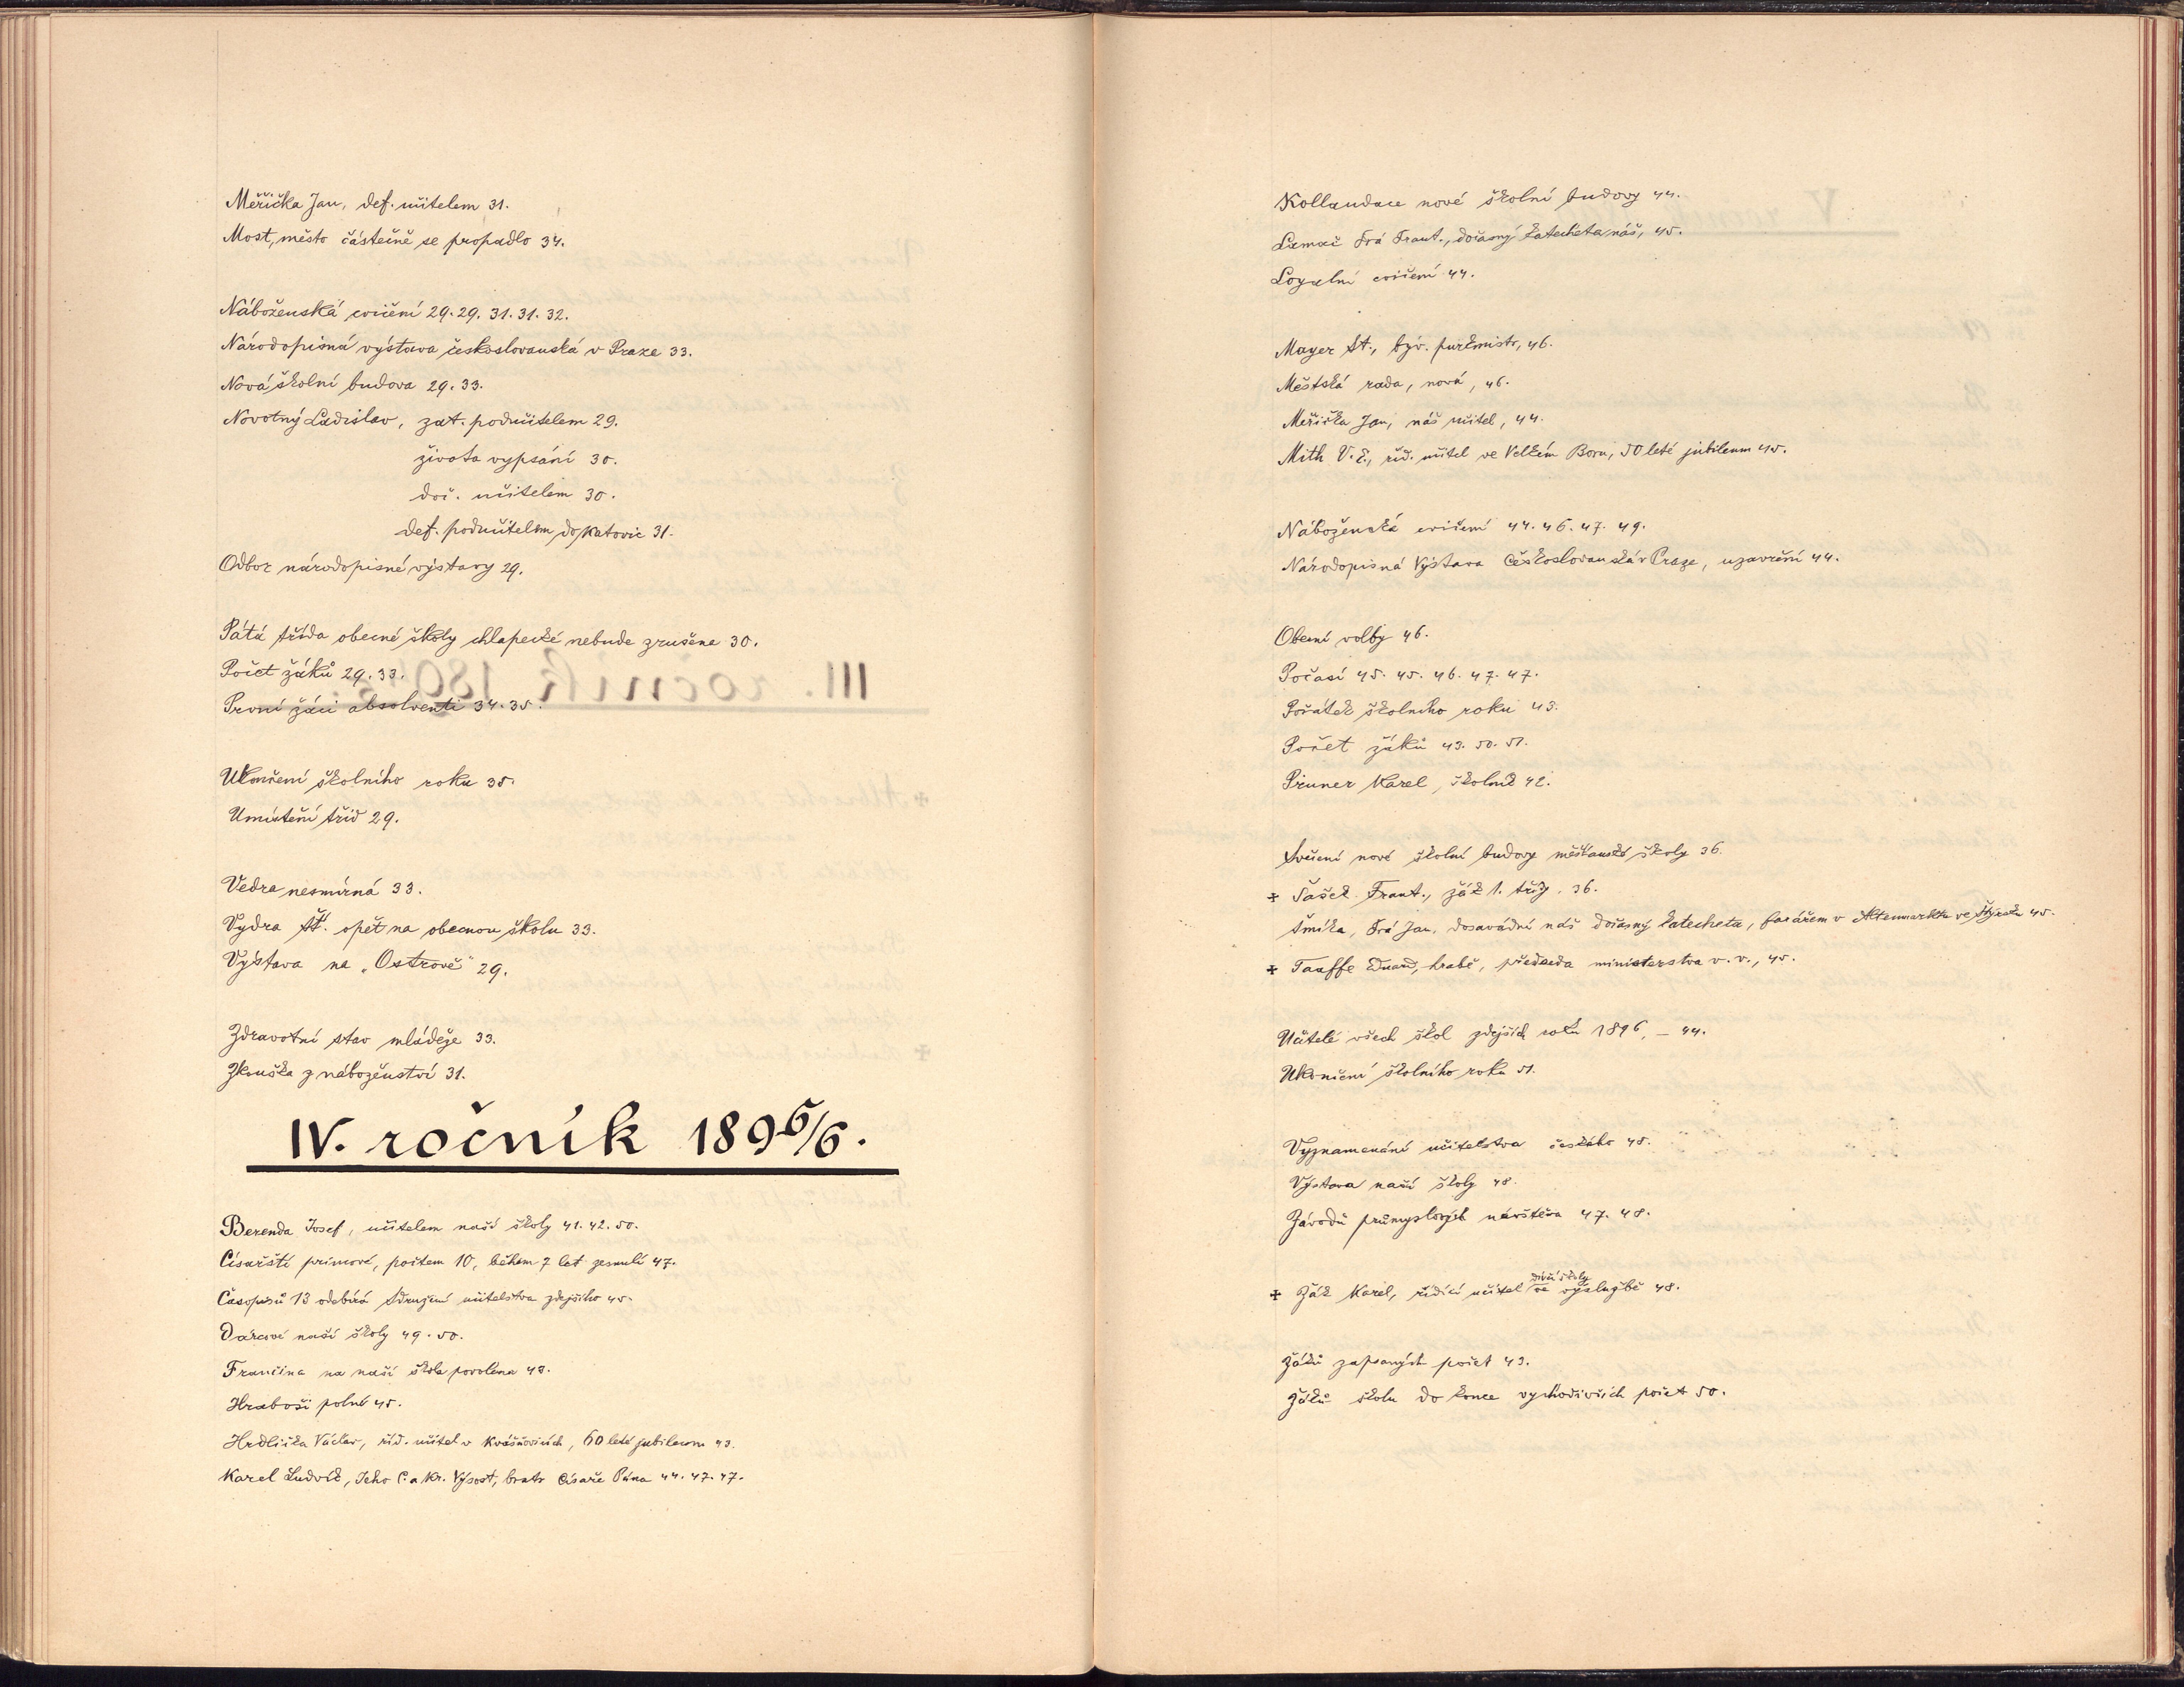 Měřička Jan, def. učitelem 31.
Most, město částečně se propadlo 34.
Náboženská cvičení 29. 29. 31. 31. 32.
Národopisná výstava českoslovanská v Praze 33.
Nová školní budova 29. 33.
Novotný Ladislav, zat. podučitelem 29.
života vypsání 30.
doč. učitelem 30.
def. podučitelem do Katovic 31.
Odbor národopisné výstavy 29.
Pátá třída obecné školy chlapecké nebude zrušena 30.
Počet žáků 29. 33.
První žáci absolventi 34. 35.
Ukončení školního roku 35.
Umístění tříd 29.
Vedra nesmírná 33.
Vydra Št. opět na obecnou školu 33.
Výstava na „Ostrově" 29.
Zdravotní stav mládeže 33.
Zkouška z náboženství 31.
IV. ročník 1895/6.
Berenda Josef, učitelem naší školy 41. 42. 50.
Císařští princové, počtem 10, během 7 let zesnulí 47.
Časopisů 13 odebírá Sdružení učitelstva zdejšího 45.
Dárcové naší školy 49. 50.
Frančina na naší škole povolena 43.
Hraboši polní 45.
Hrdlička Václav, říd. učitel v Kvášňovicích, 60 leté jubileum 43.
Karel Ludvík, Jeho C. a Kr. Výsost, bratr Císaře Pána 44. 47. 47.
Kollaudace nové školní budovy 44.
Lamač Frá Frant., dočasný katecheta náš, 45.
Loyalní cvičení 44.
Mayer St., býv. purkmistr, 46.
Městská rada, nová, 46.
Měřička Jan, náš učitel, 44.
Mith V. č., říd. učitel ve Velkém Boru, 50 leté jubileum 45.
Náboženská cvičení 44. 46. 47. 49.
Národopisná Výstava Českoslovanská v Praze, uzavření 44.
Obecní volby 46.
Počasí 45. 45. 46. 47. 47.
Počátek školního roku 43.
Počet žáků 43. 50. 51.
Pruner Karel, školník 42.
Svěcení nové školní budovy měšťanské školy 36.
✠ Šašek Frant., žák 1. tříd. 36.
Šmíka, Frá Jan, dosavádní náš dočasný katecheta, farářem v Altenmarktu ve Štýrsku 45.
✠ Taaffe Eduard, hrabě, předseda ministerstva v. v., 45.
Učitelé všech škol zdejších roku 1896, – 44.
Ukončení školního roku 51.
Vyznamenání učitelstva českého 48.
Výstava naší školy 48.
Závodů průmyslových návštěva 47. 48.
✠ Žák Karel, řídící učitel dívčí školy ve výslužbě 48.
Žáků zapsaných počet 43.
Žáků školu do konce vychodivších počet 50.